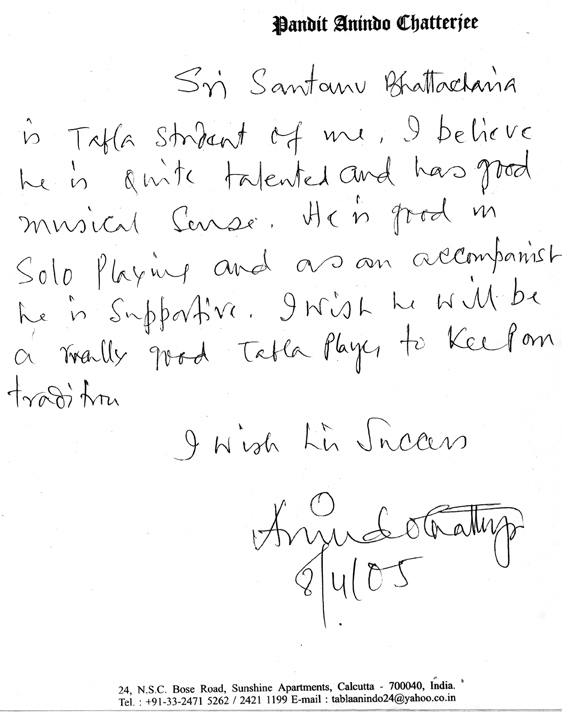 Pandit Anindo Chatterjee
Sri Santanu Bhattacharia
is Tabla Student of me. I believe
he is quite talented and has good
musical Sense. He is good in
Solo Playing and as an accompanist
he is Supportive. I wish he will be
a really good Tabla Player to Keep our
tradition
I wish his Success
Anindo Chatterjee
8/4/05
24, N.S.C. Bose Road, Sunshine Apartments, Calcutta - 700040, India.
Tel. : +91-33-2471 5262 / 2421 1199 E-mail : tablaanindo24@yahoo.co.in